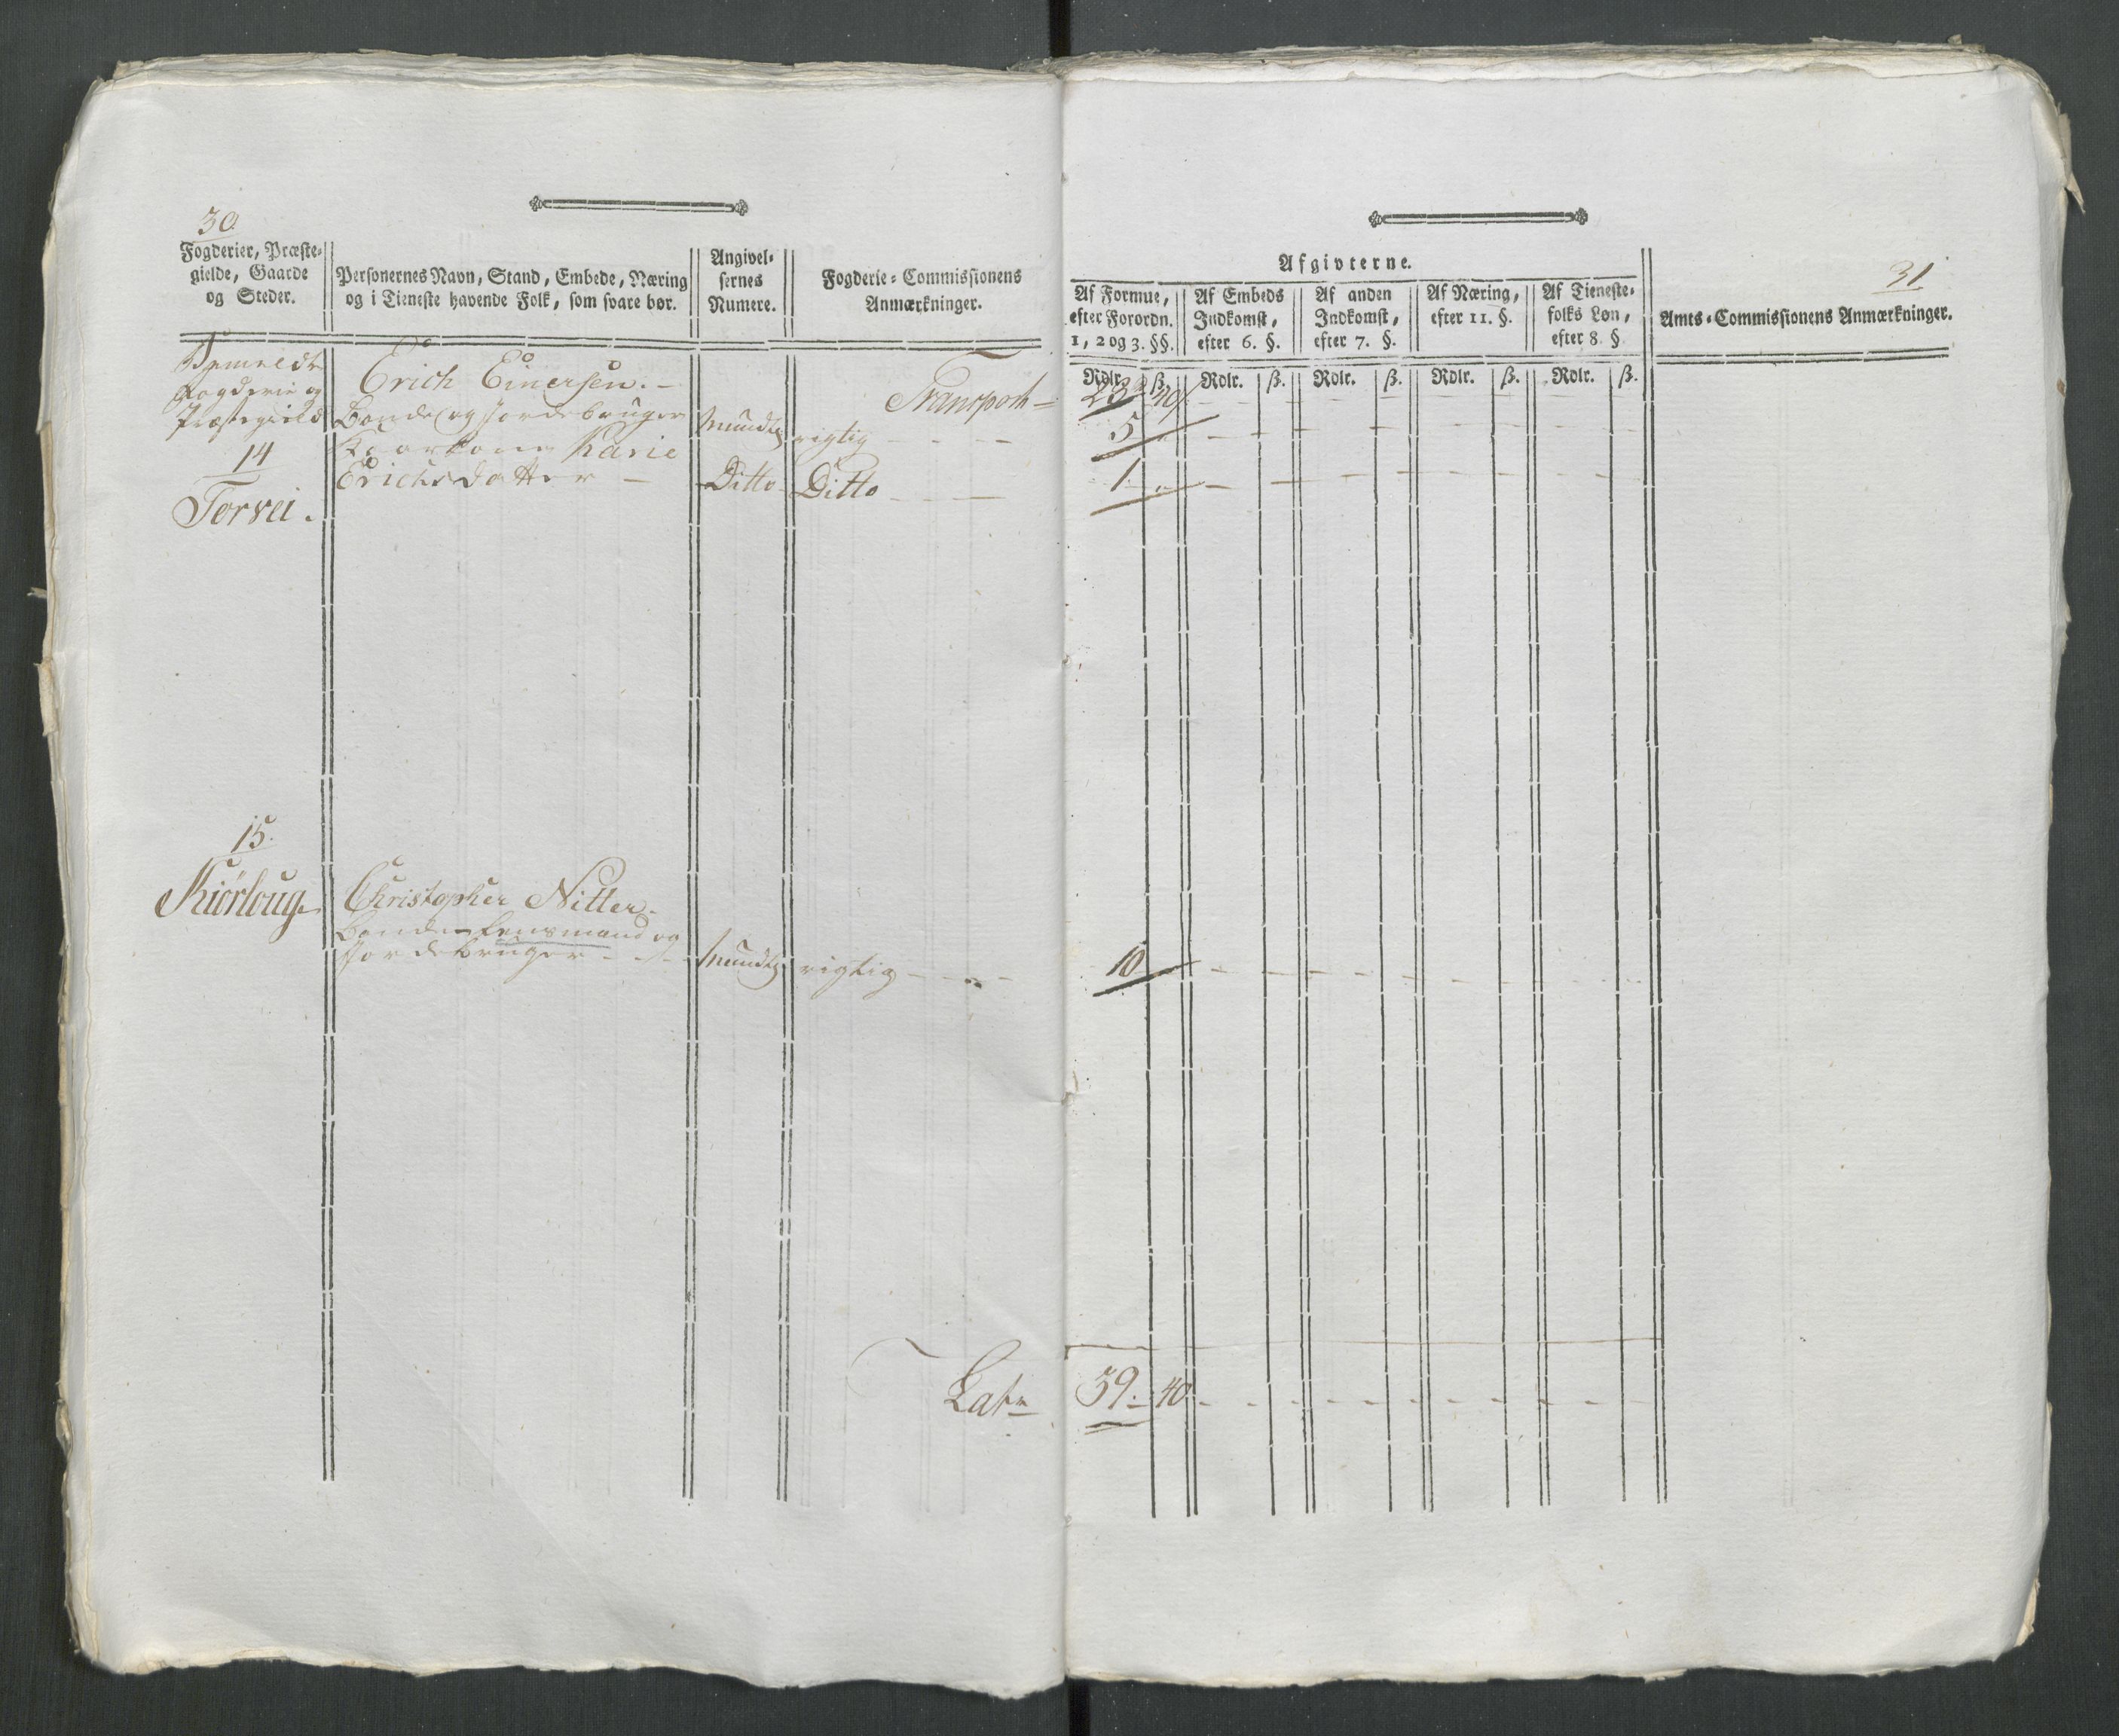 30.
Fogderier, Præste-
gielde, Gaarde
og Steder.
Personernes Navn, Stand, Embede, Næring
og i Tieneste havende Folk, som svare bør.
Angivel-
sernes
Numere.
Fogderie-Commissionens
Anmærkninger.
Fogderie og
Præstegield
14
Torvei.
Erich Einersen.-
Bonde og Jordebruger
Mundtl
rigtig
Transport
Kaarkone Karie
Erichsdatter
Ditto
Ditto
15.
Kiørloug
Christopher Nitter.
Bonde Lensmand og
Jordebruger
Mundtl
rigtig
Lat
31
Afgivterne.
Af Formue,
efter Forordn.
1, 2 og 3. §§.
Af Embeds
Indkomst,
efter 6. §.
Af anden
Indkomst,
efter 7. §.
Af Næring,
efter 11. §.
Af Tieneste-
folks Løn,
efter 8. §.
Amts-Commissionens Anmærkninger.
Rdlr. ß. Rdlr. ß. Rdlr. ß. Rdlr. ß. Rdlr. ß.
23 40
5
1
10
39 40